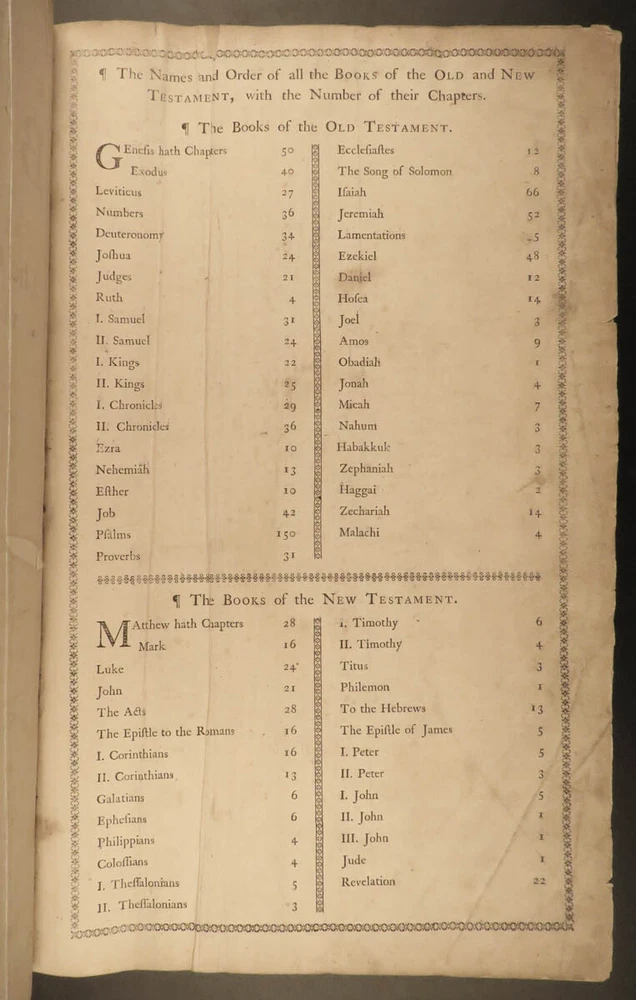 ¶ The Names and Order of all the Books of the Old and New
Testament, with the Number of their Chapters.
¶ The Books of the Old Testament.
GEneſis hath Chapters 50
Exodus 40
Leviticus 27
Numbers 36
Deuteronomy 34
Joſhua 24
Judges 21
Ruth 4
I. Samuel 31
II. Samuel 24
I. Kings 22
II. Kings 25
I. Chronicles 29
II. Chronicles 36
Ezra 10
Nehemiah 13
Eſther 10
Job 42
Pſalms 150
Proverbs 31
Eccleſiaſtes 12
The Song of Solomon 8
Iſaiah 66
Jeremiah 52
Lamentations 5
Ezekiel 48
Daniel 12
Hoſea 14
Joel 3
Amos 9
Obadiah 1
Jonah 4
Micah 7
Nahum 3
Habakkuk 3
Zephaniah 3
Haggai 2
Zechariah 14
Malachi 4
¶ The Books of the New Testament.
MAtthew hath Chapters 28
Mark 16
Luke 24
John 21
The Acts 28
The Epiſtle to the Romans 16
I. Corinthians 16
II. Corinthians 13
Galatians 6
Epheſians 6
Philippians 4
Coloſſians 4
I. Theſſalonians 5
II. Theſſalonians 3
I. Timothy 6
II. Timothy 4
Titus 3
Philemon 1
To the Hebrews 13
The Epiſtle of James 5
I. Peter 5
II. Peter 3
I. John 5
II. John 1
III. John 1
Jude 1
Revelation 22